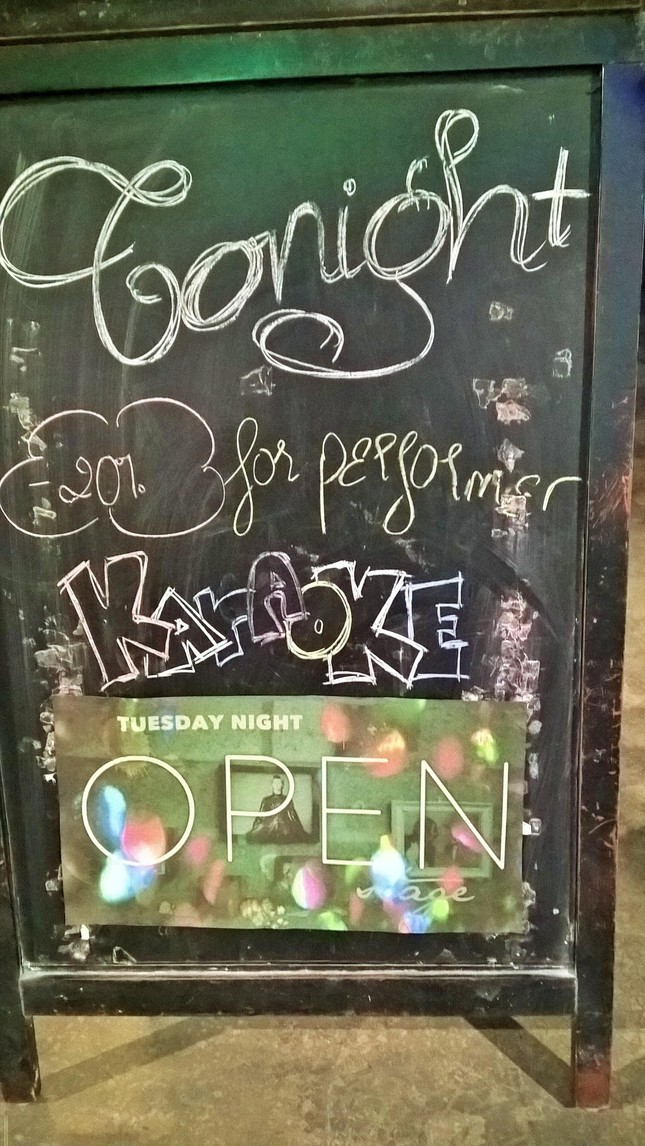 Tonight
20% for performer
KArAOKE
TUESDAY NIGHT
OPEN
stage